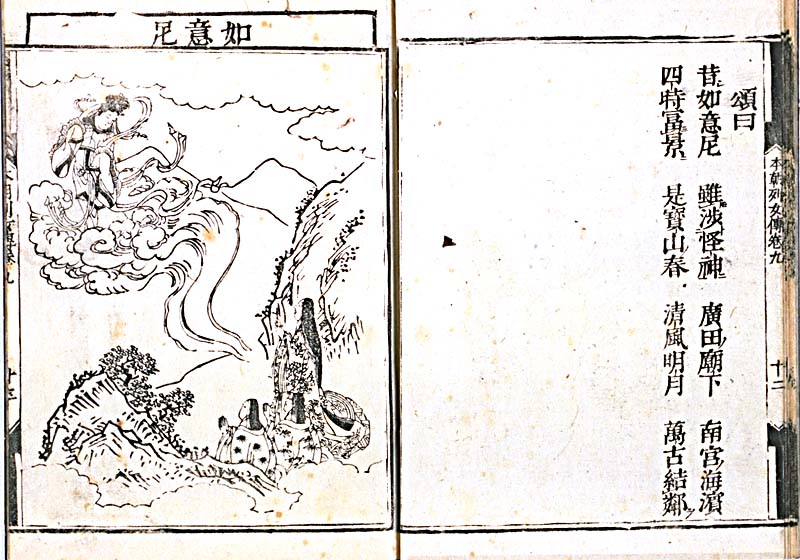 頌曰
昔如意尼 雖涉怪神 廣田廟下 南宮海濱
四時冨景 是寶山春 清風明月 萬古結鄰
本朝列女傳卷九
十二
如意尼